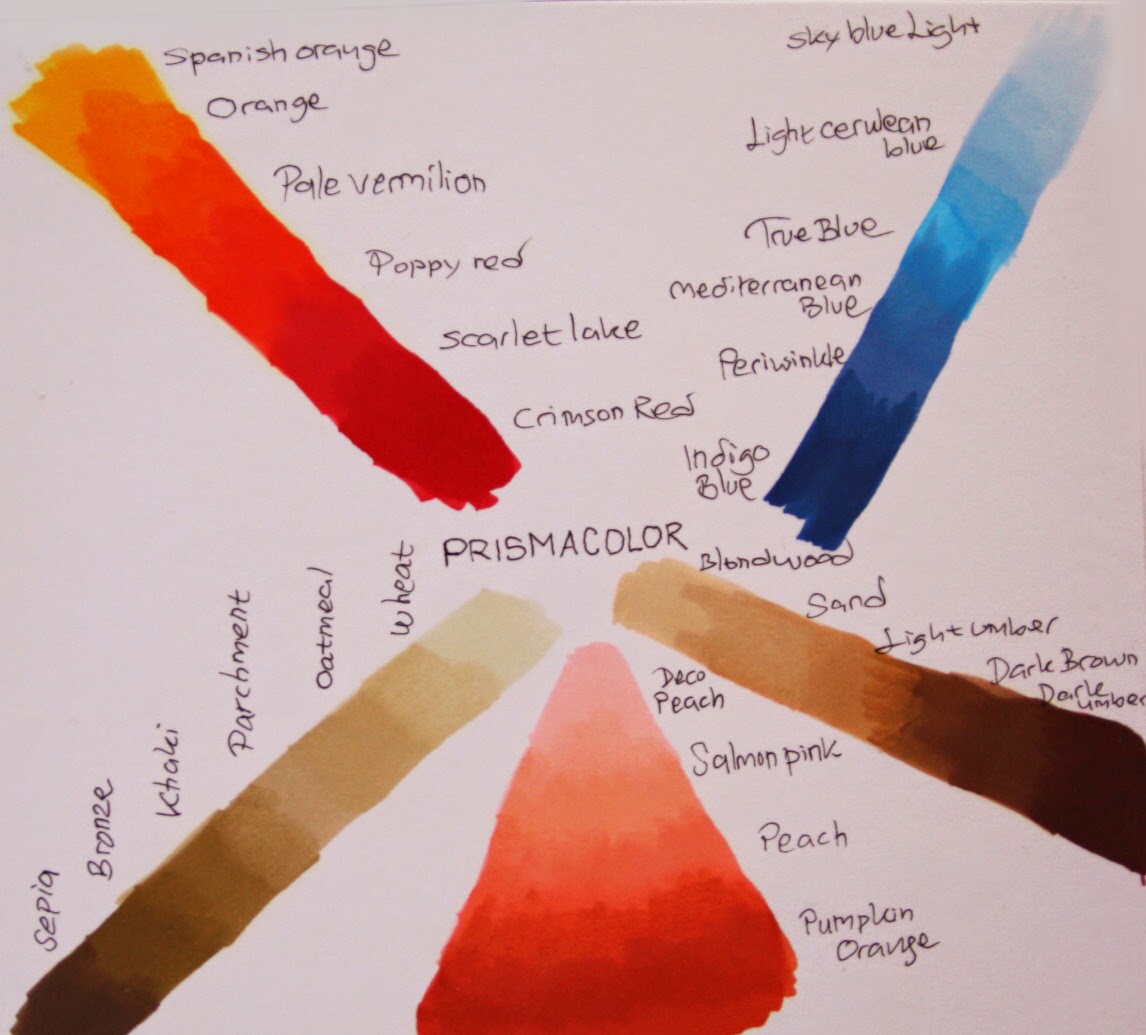 Spanish orange
Orange
Pale vermilion
Poppy red
scarlet lake
Crimson Red
sky blue Light
Light cerulean
blue
True Blue
mediterranean
Blue
Periwinkle
Indigo
Blue
PRISMACOLOR
Blondwood
Sand
Light umber
Dark Brown
Dark
umber
Wheat
Oatmeal
Parchment
Khaki
Bronze
Sepia
Deco
Peach
Salmon pink
Peach
Pumpkin
Orange